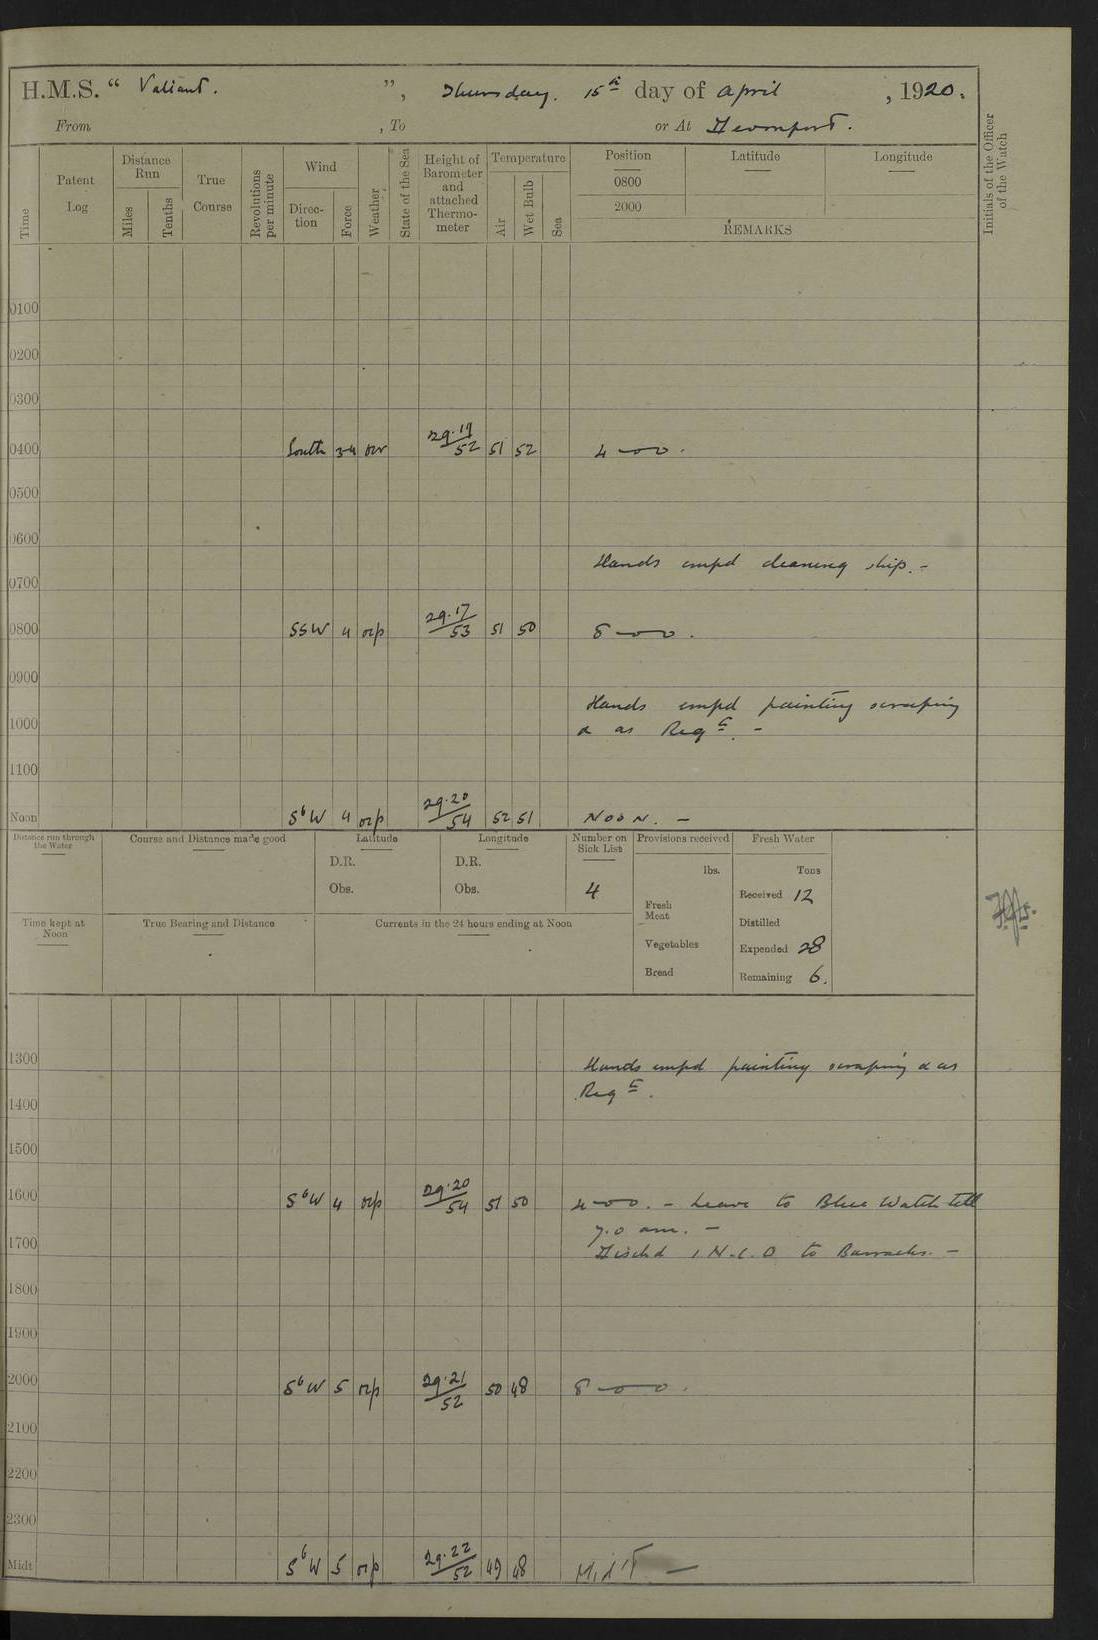 H.M.S. “ Valiant. ”, Thursday. 15th day of April, 1920.
From , To or At Devonport.
Time
Patent Log
Distance Run
Miles
Tenths
True Course
Revolutions per minute
Wind
Direction
Force
Weather
State of the Sea
Height of Barometer and attached Thermometer
Temperature
Air
Wet Bulb
Sea
Position
0800
2000
Latitude
Longitude
REMARKS
Initials of the Officer of the Watch
0100
0200
0300
0400 South 3-4 or 29.19/52 51 52 4-00.
0500
0600
Hands empd cleaning ship. -
0700
0800 SSW 4 orp 29.17/53 51 50 8-00.
0900
Hands empd painting scraping
1000 & as Reqd. -
1100
Noon SbW 4 orp 29.20/54 52 51 Noon. -
Distance run through the Water
Course and Distance made good
Latitude
D.R.
Obs.
Longitude
D.R.
Obs.
Number on Sick List
4
Provisions received
lbs.
Fresh Meat
Vegetables
Bread
Fresh Water
Tons
Received 12
Distilled
Expended 28
Remaining 6.
Time kept at Noon
True Bearing and Distance
Currents in the 24 hours ending at Noon
1300 Hands empd painting scraping & as
1400 Reqd.
1500
1600 SbW 4 orp 29.20/54 51 50 4-00. - Leave to Blue Watch till
7.0 am. -
1700 Dischd 1 N.C.O to Barracks. -
1800
1900
2000 SbW 5 orp 29.21/52 50 48 8-00.
2100
2200
2300
Midt SbW 5 orp 29.22/52 49 48 Mid't -